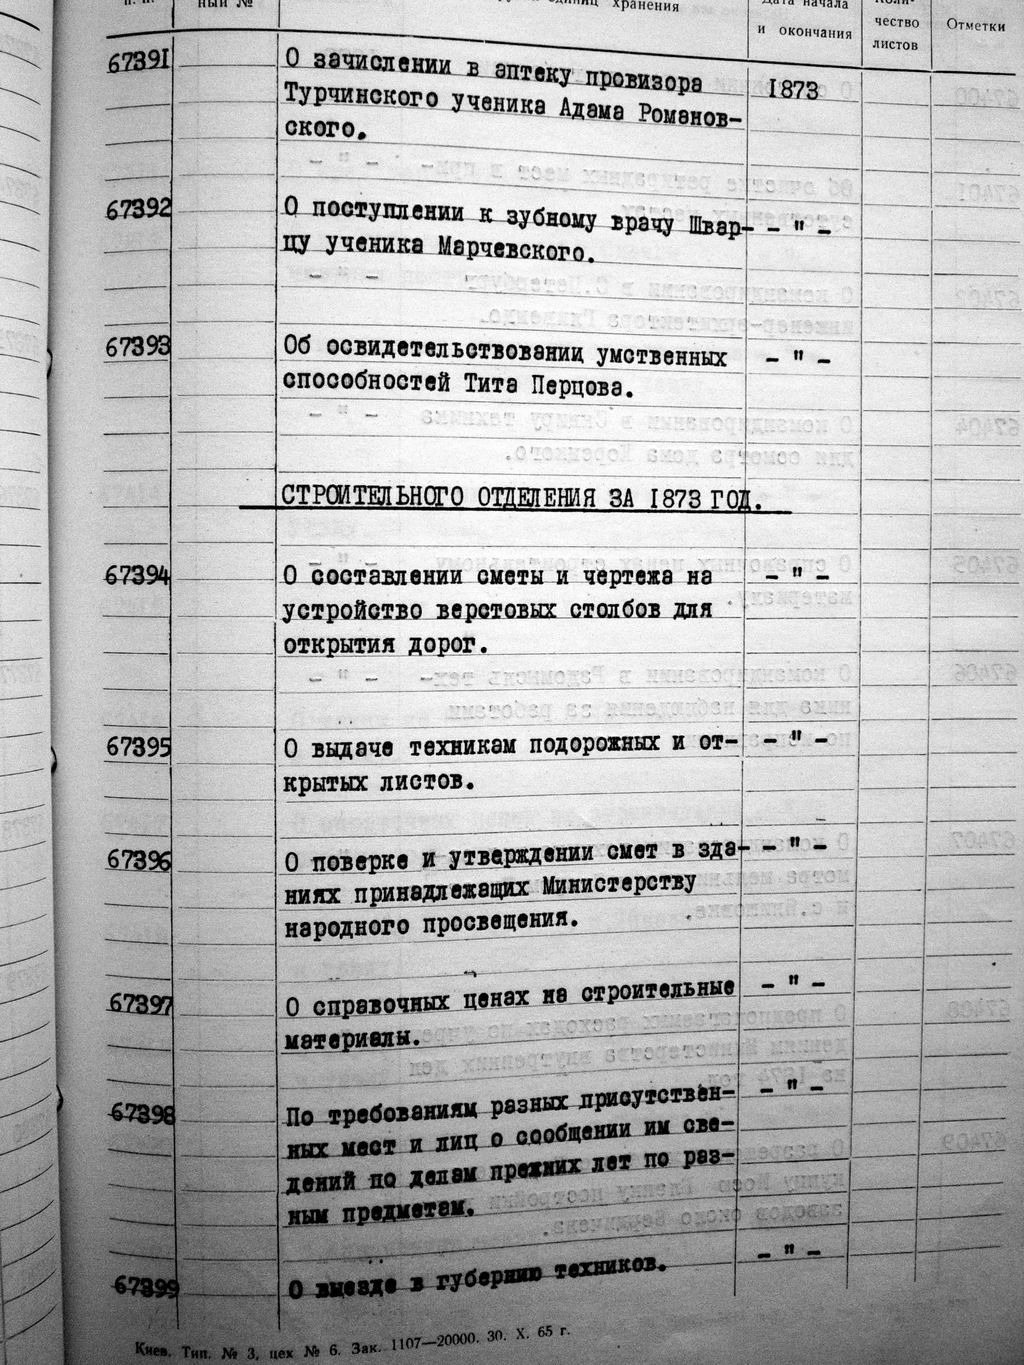 п. п.
ный №
единиц хранения
Дата начала
и окончания
Коли-
чество
листов
Отметки
67391
О зачислении в аптеку провизора
1873
Турчинского ученика Адама Романов-
ского.
67392
О поступлении к зубному врачу Швар-
- " -
цу ученика Марчевского.
67393
Об освидетельствовании умственных
- " -
способностей Тита Перцова.
СТРОИТЕЛЬНОГО ОТДЕЛЕНИЯ ЗА 1873 ГОД.
67394
О составлении сметы и чертежа на
- " -
устройство верстовых столбов для
открытия дорог.
67395
О выдаче техникам подорожных и от-
- " -
крытых листов.
67396
О поверке и утверждении смет в зда-
- " -
ниях принадлежащих Министерству
народного просвещения.
67397
О справочных ценах на строительные
- " -
материалы.
67398
По требованиям разных присутствен-
- " -
ных мест и лиц о сообщении им све-
дений по делам прежних лет по раз-
ным предметам.
67399
О выезде в губернию техников.
- " -
Киев. Тип. № 3, цех № 6. Зак. 1107—20000. 30. X. 65 г.